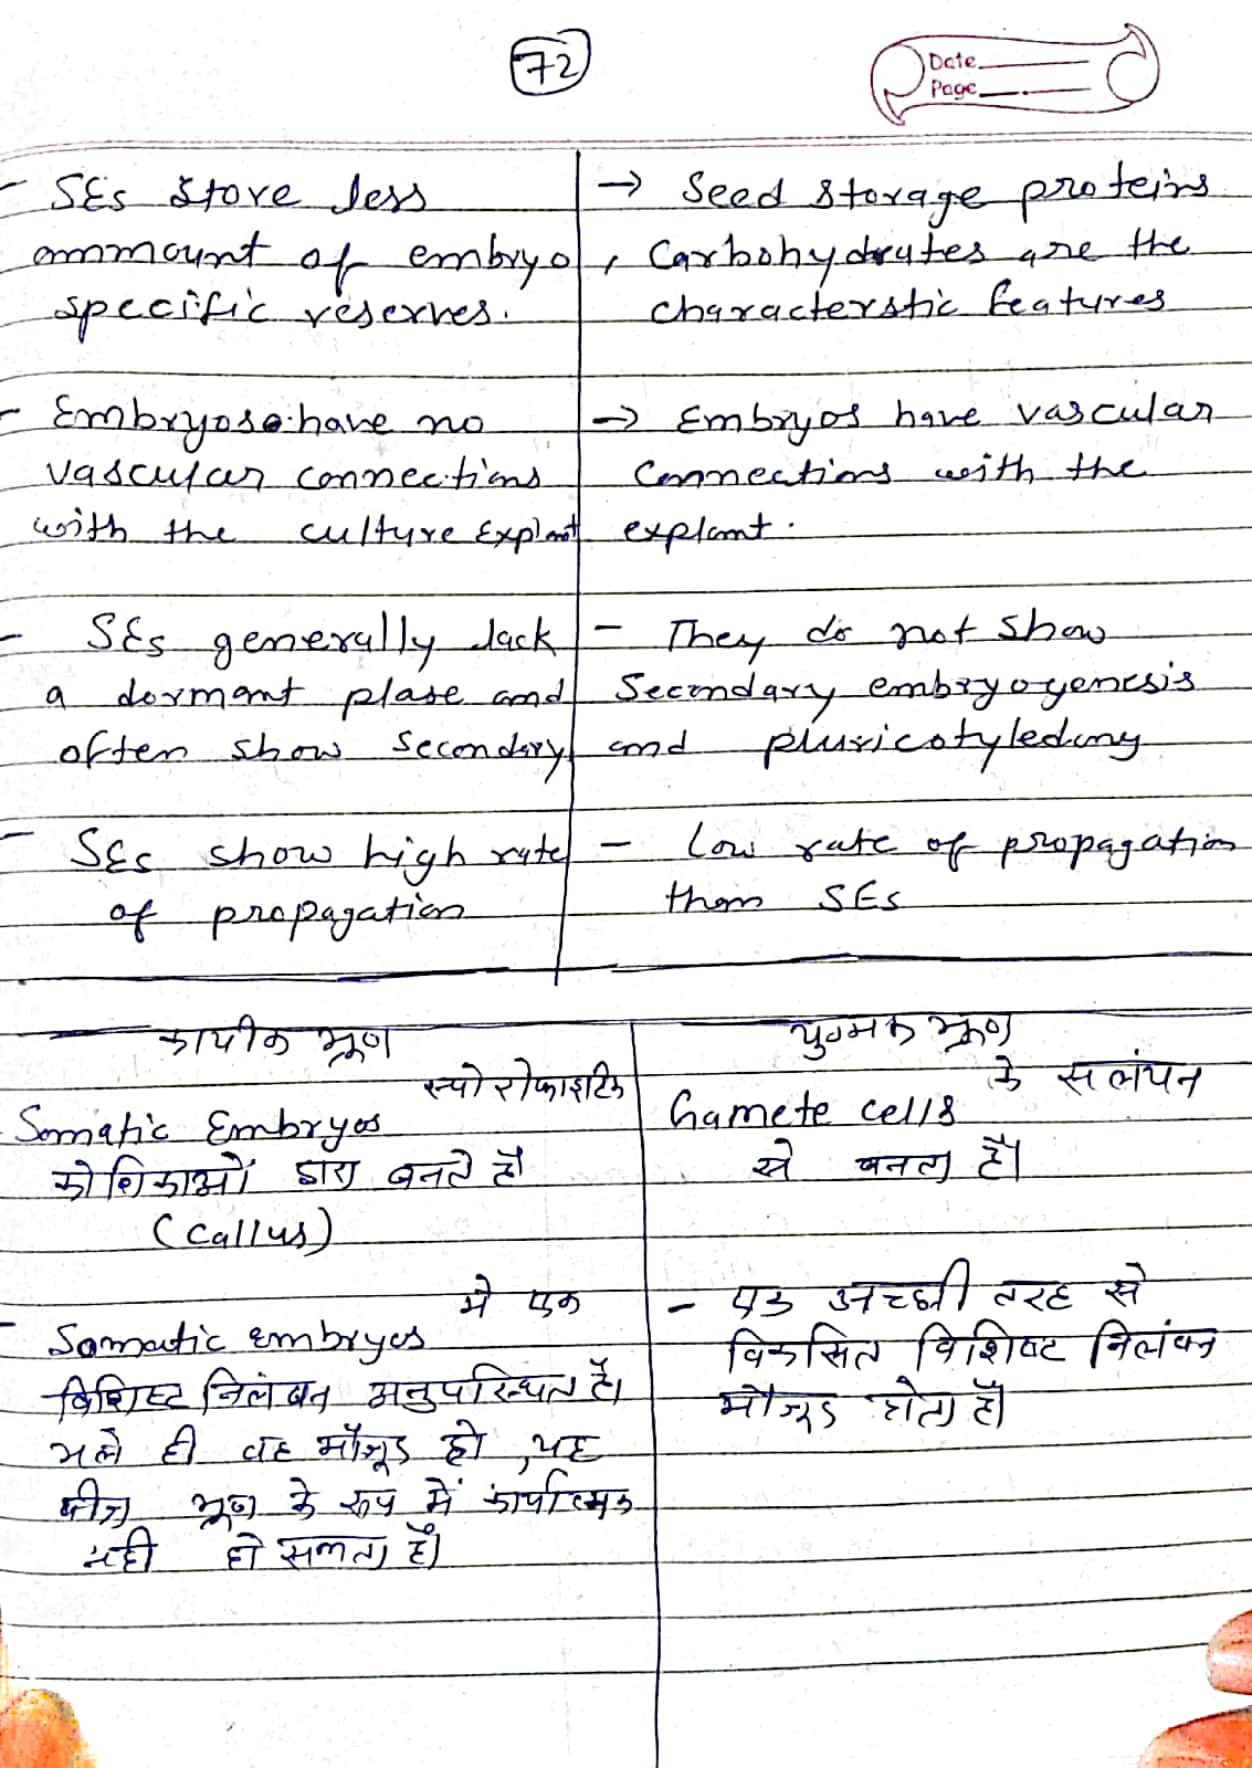 72
Date
Page
- SEs store less
ammount of embryo
specific reserves.
→ Seed storage proteins
, Carbohydrates are the
characterstic features
- Embryos have no
vascular connections
with the culture explant
→ Embryos have vascular
connections with the
explant.
- SEs generally lack
a dormant plase and
often show secondary
- They do not show
Secondary embryogenesis
and pluricotyledony
- SEs show high rate
of propagation
- Low rate of propagation
than SEs
कायीक भ्रूण
स्पोरोफाइटिक
Somatic Embryos
कोशिकाओं द्वारा बनते हैं
(Callus)
में एक
- Somatic embryos
विशिष्ट निलंबन अनुपस्थित है।
भले ही वह मौजूद हो, यह
बीज भ्रूण के रूप में कार्यात्मक
नही हो सकता है।
युग्मक भ्रूण
के सलंयन
Gamete cells
से बनता है।
- एक अच्छी तरह से
विकसित विशिष्ट निलंबन
मौजूद होता है।